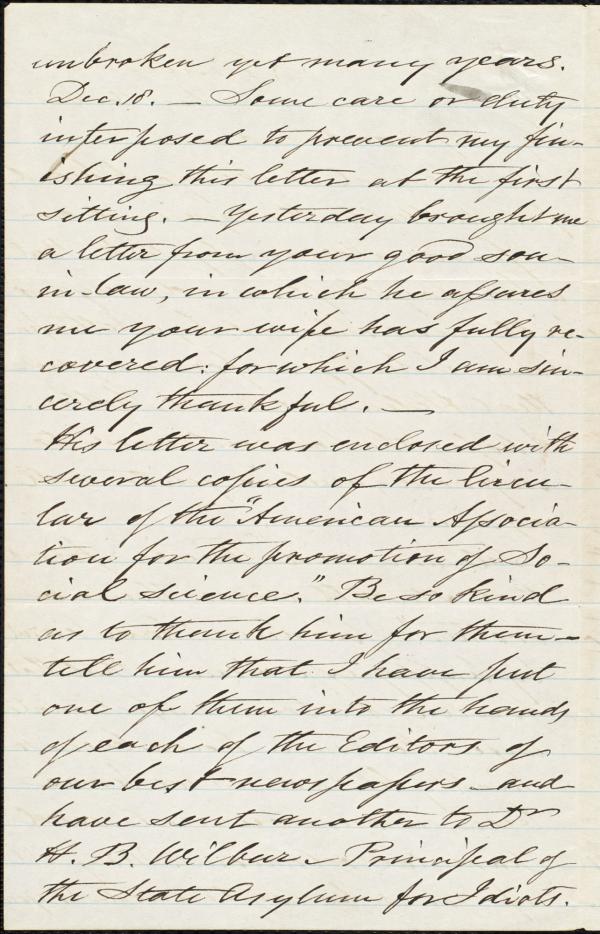 unbroken yet many years.
Dec. 18. — Some care or duty
interposed to prevent my fin-
ishing this letter at the first
sitting. — Yesterday brought me
a letter from your good son-
in-law, in which he assures
me your wife has fully re-
covered: for which I am sin-
cerely thankful. —
His letter was enclosed with
several copies of the Circu-
lar of the "American Associa-
tion for the promotion of So-
cial Science." Be so kind
as to thank him for them —
tell him that I have put
one of them into the hands
of each of the Editors of
our best newspapers — and
have sent another to Dr
H. B. Wilbur — Principal of
the State Asylum for Idiots.